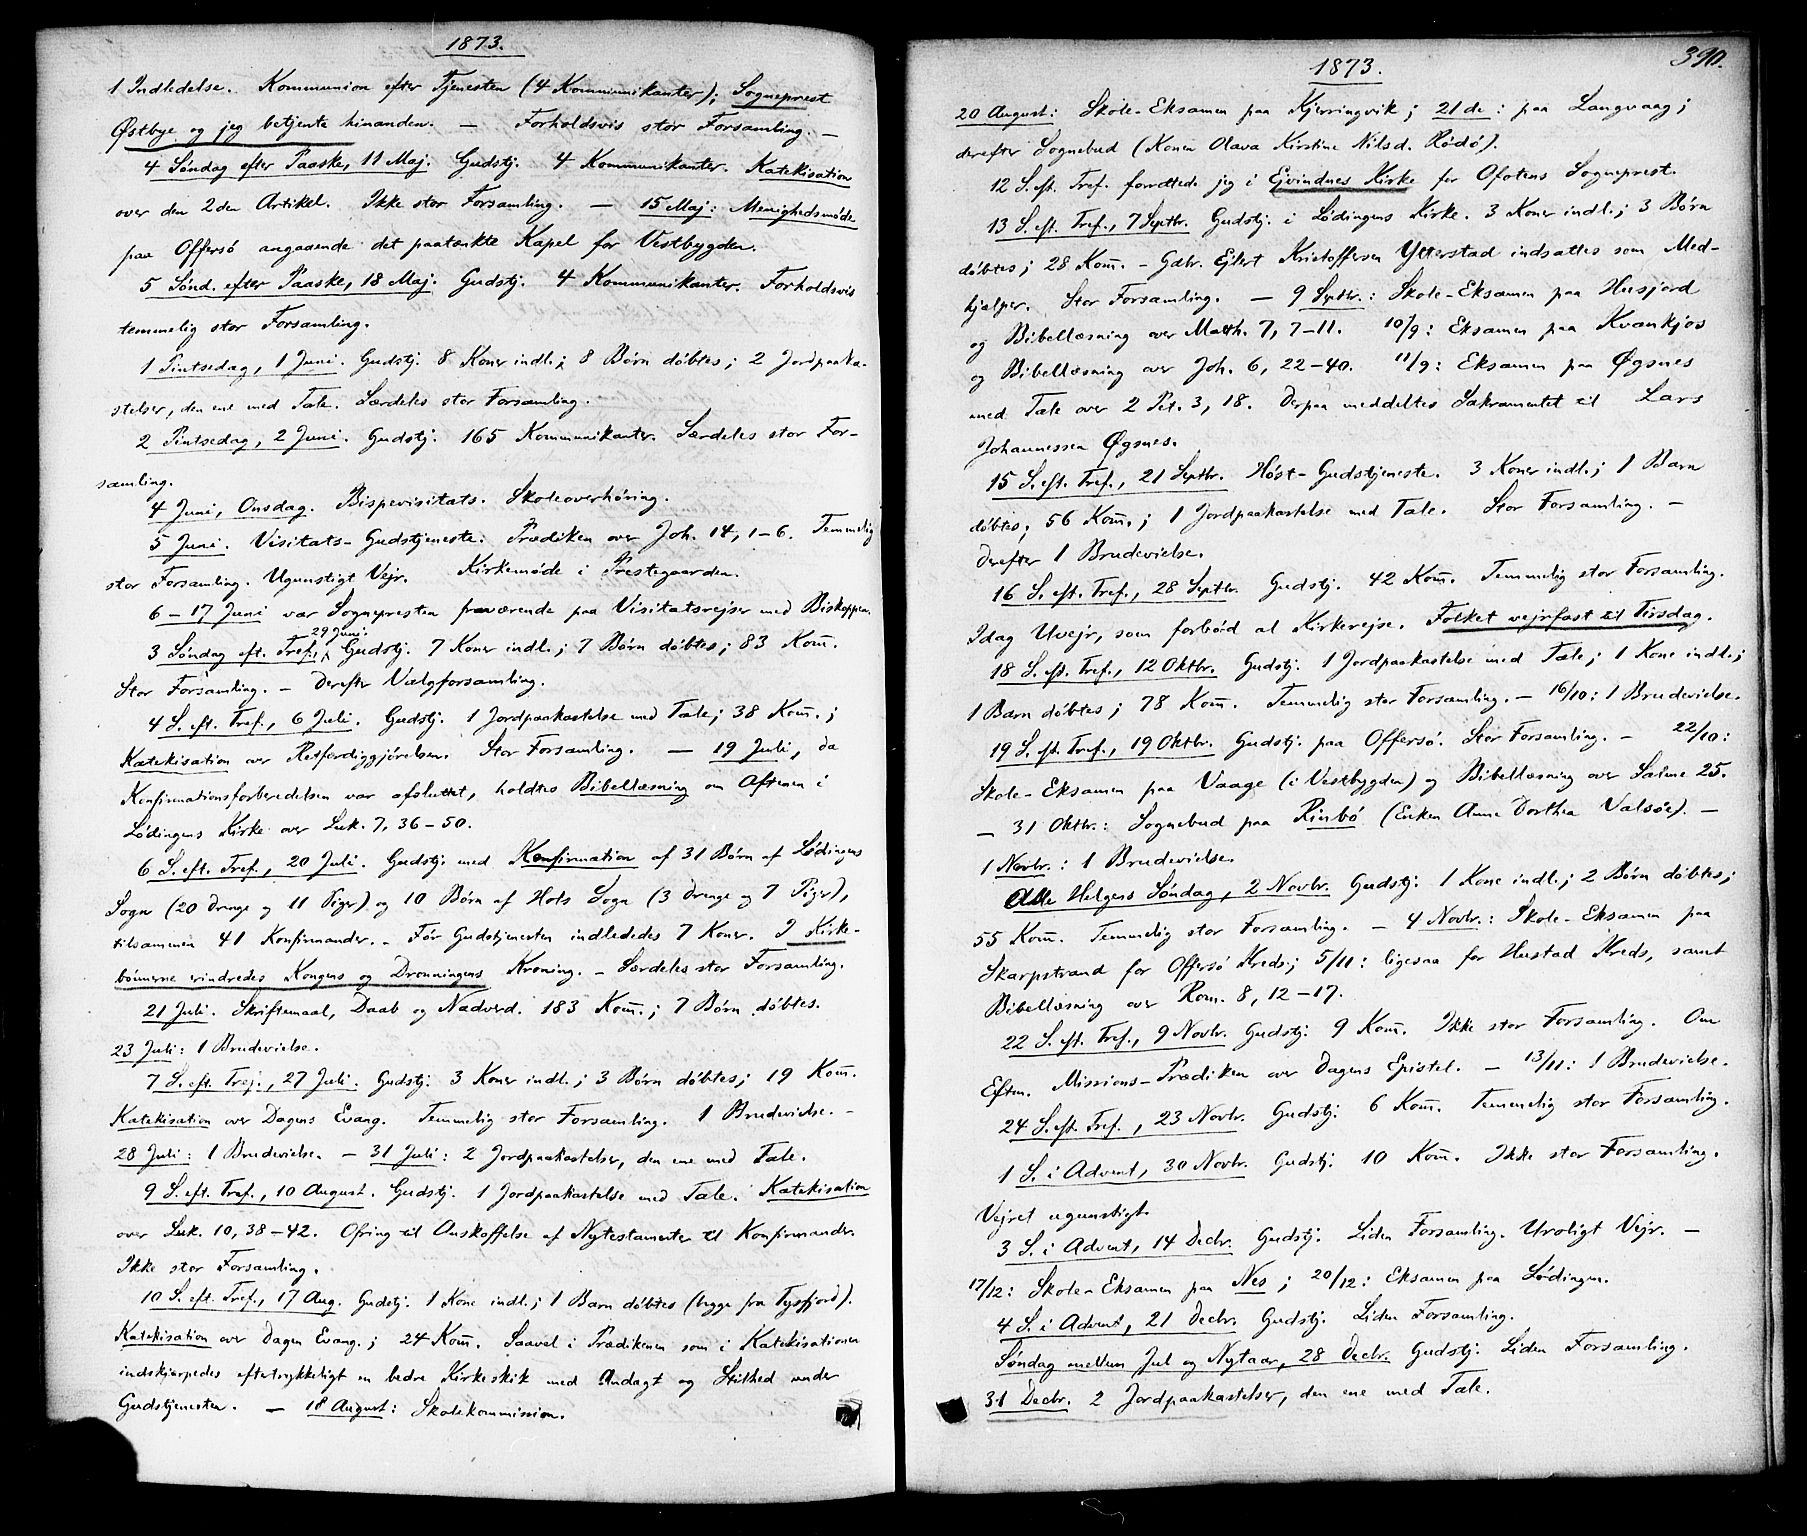 1873.
1 Indledelse. Kommunion efter Tjenesten (4 Kommunikanter); Sogneprest
Østbye og jeg betjente hinanden. — Forholdsvis stor Forsamling. —
4 Søndag efter Paaske, 11 Maj. Gudstj. 4 Kommunikanter. Katekisation
over den 2den Artikel. Ikke stor Forsamling. — 15 Maj: Menighedsmøde
paa Offersø angaaende det paatænkte Kapel for Vestbygden.
5 Sønd. efter Paaske, 18 Maj. Gudstj. 4 Kommunikanter. Forholdsvis
temmelig stor Forsamling.
1 Pintsedag, 1 Juni. Gudstj. 8 Koner indl.; 8 Børn døbtes; 2 Jordpaaka-
stelser, den ene med Tale. Særdeles stor Forsamling.
2 Pintsedag, 2 Juni. Gudstj. 165 Kommunikanter. Særdeles stor For-
samling.
4 Juni, Onsdag. Bispevisitats. Skoleoverhøring.
5 Juni. Visitats-Gudstjeneste. Prædiken over Joh. 14, 1-6. Temmelig
stor Forsamling. Ugunstigt Vejr. Kirkemøde i Prestegaarden.
6-17 Juni var Sognepresten fraværende paa Visitatsrejser med Biskoppen.
3 Søndag eft. Tref., 29 Juni. Gudstj. 7 Koner indl.; 7 Børn døbtes; 83 Kom̅.
Stor Forsamling. — Derefter Valgforsamling.
4 S. eft. Tref., 6 Juli. Gudstj. 1 Jordpaakastelse med Tale; 38 Kom̅.;
Katekisation over Retfærdiggjørelsen. Stor Forsamling. — 19 Juli, da
Konfirmationsforberedelsen var afsluttet, holdtes Bibellæsning om Aftenen i
Lødingens Kirke over Luk. 7, 36-50.
6 S. eft. Tref., 20 Juli. Gudstj. med Konfirmation af 31 Børn af Lødingens
Sogn (20 Drenge og 11 Piger) og 10 Børn af Hols Sogn (3 Drenge og 7 Piger),
tilsammen 41 Konfirmander. — Før Gudstjenesten indlededes 7 Koner. I Kirke-
bønnerne erindredes Kongens og Dronningens Kroning. — Særdeles stor Forsamling.
21 Juli. Skriftemaal, Daab og Nadverd. 183 Kom̅.; 7 Børn døbtes.
23 Juli: 1 Brudevielse.
7 S. eft. Tref., 27 Juli. Gudstj. 3 Koner indl.; 3 Børn døbtes; 19 Kom̅.
Katekisation over Dagens Evang. Temmelig stor Forsamling. 1 Brudevielse. —
28 Juli: 1 Brudevielse. — 31 Juli: 2 Jordpaakastelser, den ene med Tale.
9 S. eft. Tref., 10 August. Gudstj. 1 Jordpaakastelse med Tale. Katekisation
over Luk. 10, 38-42. Ofring til Anskaffelse af Nytestamenter til Konfirmander.
Ikke stor Forsamling.
10 S. eft. Tref., 17 Aug. Gudstj. 1 Kone indl.; 1 Barn døbtes (begge fra Tysfjord).
Katekisation over Dagen Evang.; 24 Kom̅. Saavel i Prædikenen som i Katekisationen
indskjærpedes eftertrykkeligt en bedre Kirkeskik med Andagt og Stilhed under
Gudstjenesten. — 18 August: Skolekommission.
390.
1873.
20 August: Skole-Eksamen paa Kjerringvik; 21 de: paa Langvaag;
derefter Sognebud (Konen Olava Kirstine Nilsd. Rødø).
12 S. eft. Tref. forrettede jeg i Evindnes Kirke for Ofotens Sogneprest.
13 S. eft. Tref., 7 Septbr. Gudstj. i Lødingens Kirke. 3 Koner indl.; 3 Børn
døbtes; 28 Kom̅. — Gdbr. Ejlert Kristoffersen Ytterstad indsattes som Med-
hjælper. Stor Forsamling. — 9 Septbr.: Skole-Eksamen paa Husjord
og Bibellæsning over Matth. 7, 7-11. 10/9: Eksamen paa Kvankjos
og Bibellæsning over Joh. 6, 22-40. 11/9: Eksamen paa Øgsnes
med Tale over 2 Pet. 3, 18. Derpaa meddeltes Sakramentet til Lars
Johannessen Øgsnes.
15 S. eft. Tref., 21 Septbr. Høst-Gudstjeneste. 3 Koner indl.; 1 Barn
døbtes; 56 Kom̅.; 1 Jordpaakastelse med Tale. Stor Forsamling. —
Derefter 1 Brudevielse.
16 S. eft. Tref., 28 Septbr. Gudstj. 42 Kom̅. Temmelig stor Forsamling.
Idag Uvejr, som forbød al Kirkerejse. Folket vejrfast til Tirsdag.
18 S. eft. Tref., 12 Oktbr. Gudstj. 1 Jordpaakastelse med Tale; 1 Kone indl.;
1 Barn døbtes; 78 Kom̅. Temmelig stor Forsamling. — 16/10: 1 Brudevielse.
19 S. eft. Tref., 19 Oktbr. Gudstj. paa Offersø. Stor Forsamling. — 22/10:
Skole-Eksamen paa Vaage (i Vestbygden) og Bibellæsning over Salme 25.
— 31 Oktbr.: Sognebud paa Rinbø (Enken Anne Dorthea Valsøe). —
1 Novbr.: 1 Brudevielse.
Alle Helgens Søndag, 2 Novbr. Gudstj. 1 Kone indl.; 2 Børn døbtes;
55 Kom̅. Temmelig stor Forsamling. — 4 Novbr.: Skole-Eksamen paa
Skarpstrand for Offersø Kreds; 5/11: ligesaa for Hustad Kreds, samt
Bibellæsning over Rom. 8, 12-17.
22 S. eft. Tref., 9 Novbr. Gudstj. 9 Kom̅. Ikke stor Forsamling. Om
Eftm. Missions-Prædiken over Dagens Epistel. — 13/11: 1 Brudevielse.
24 S. eft. Tref., 23 Novbr. Gudstj. 6 Kom̅. Temmelig stor Forsamling.
1 S. i Advent, 30 Novbr. Gudstj. 10 Kom̅. Ikke stor Forsamling.
Vejret ugunstigt.
3 S. i Advent, 14 Decbr. Gudstj. Liden Forsamling. Uroligt Vejr. —
17/12: Skole-Eksamen paa Nes; 20/12: Eksamen paa Lødingen.
4 S. i Advent, 21 Decbr. Gudstj. Liden Forsamling.
Søndag mellem Jul og Nytaar, 28 Decbr. Gudstj. Liden Forsamling.
31 Decbr. 2 Jordpaakastelser, den ene med Tale.